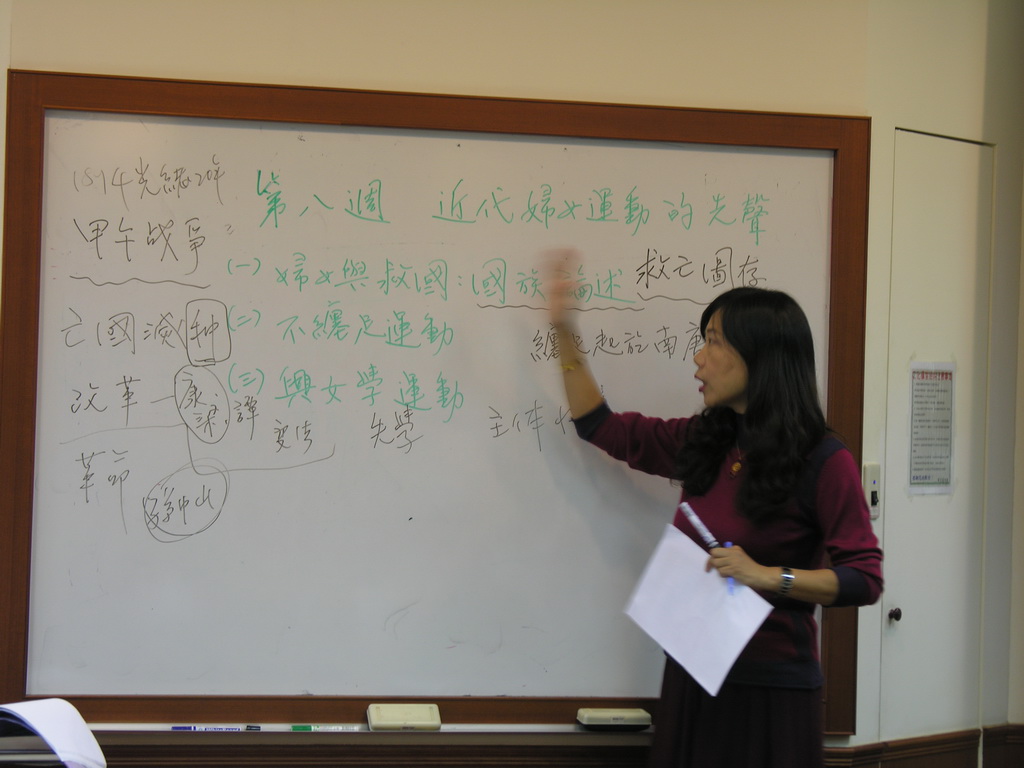 第八週 近代婦女運動的先聲
(一) 婦女與救國:國族論述 救亡圖存
(二) 不纏足運動
纏足起於南唐
(三) 興女學運動
1894光緒20年
甲午战爭
亡國滅种
改革 康.梁.譚
变法
先學
主体
革命
孫中山